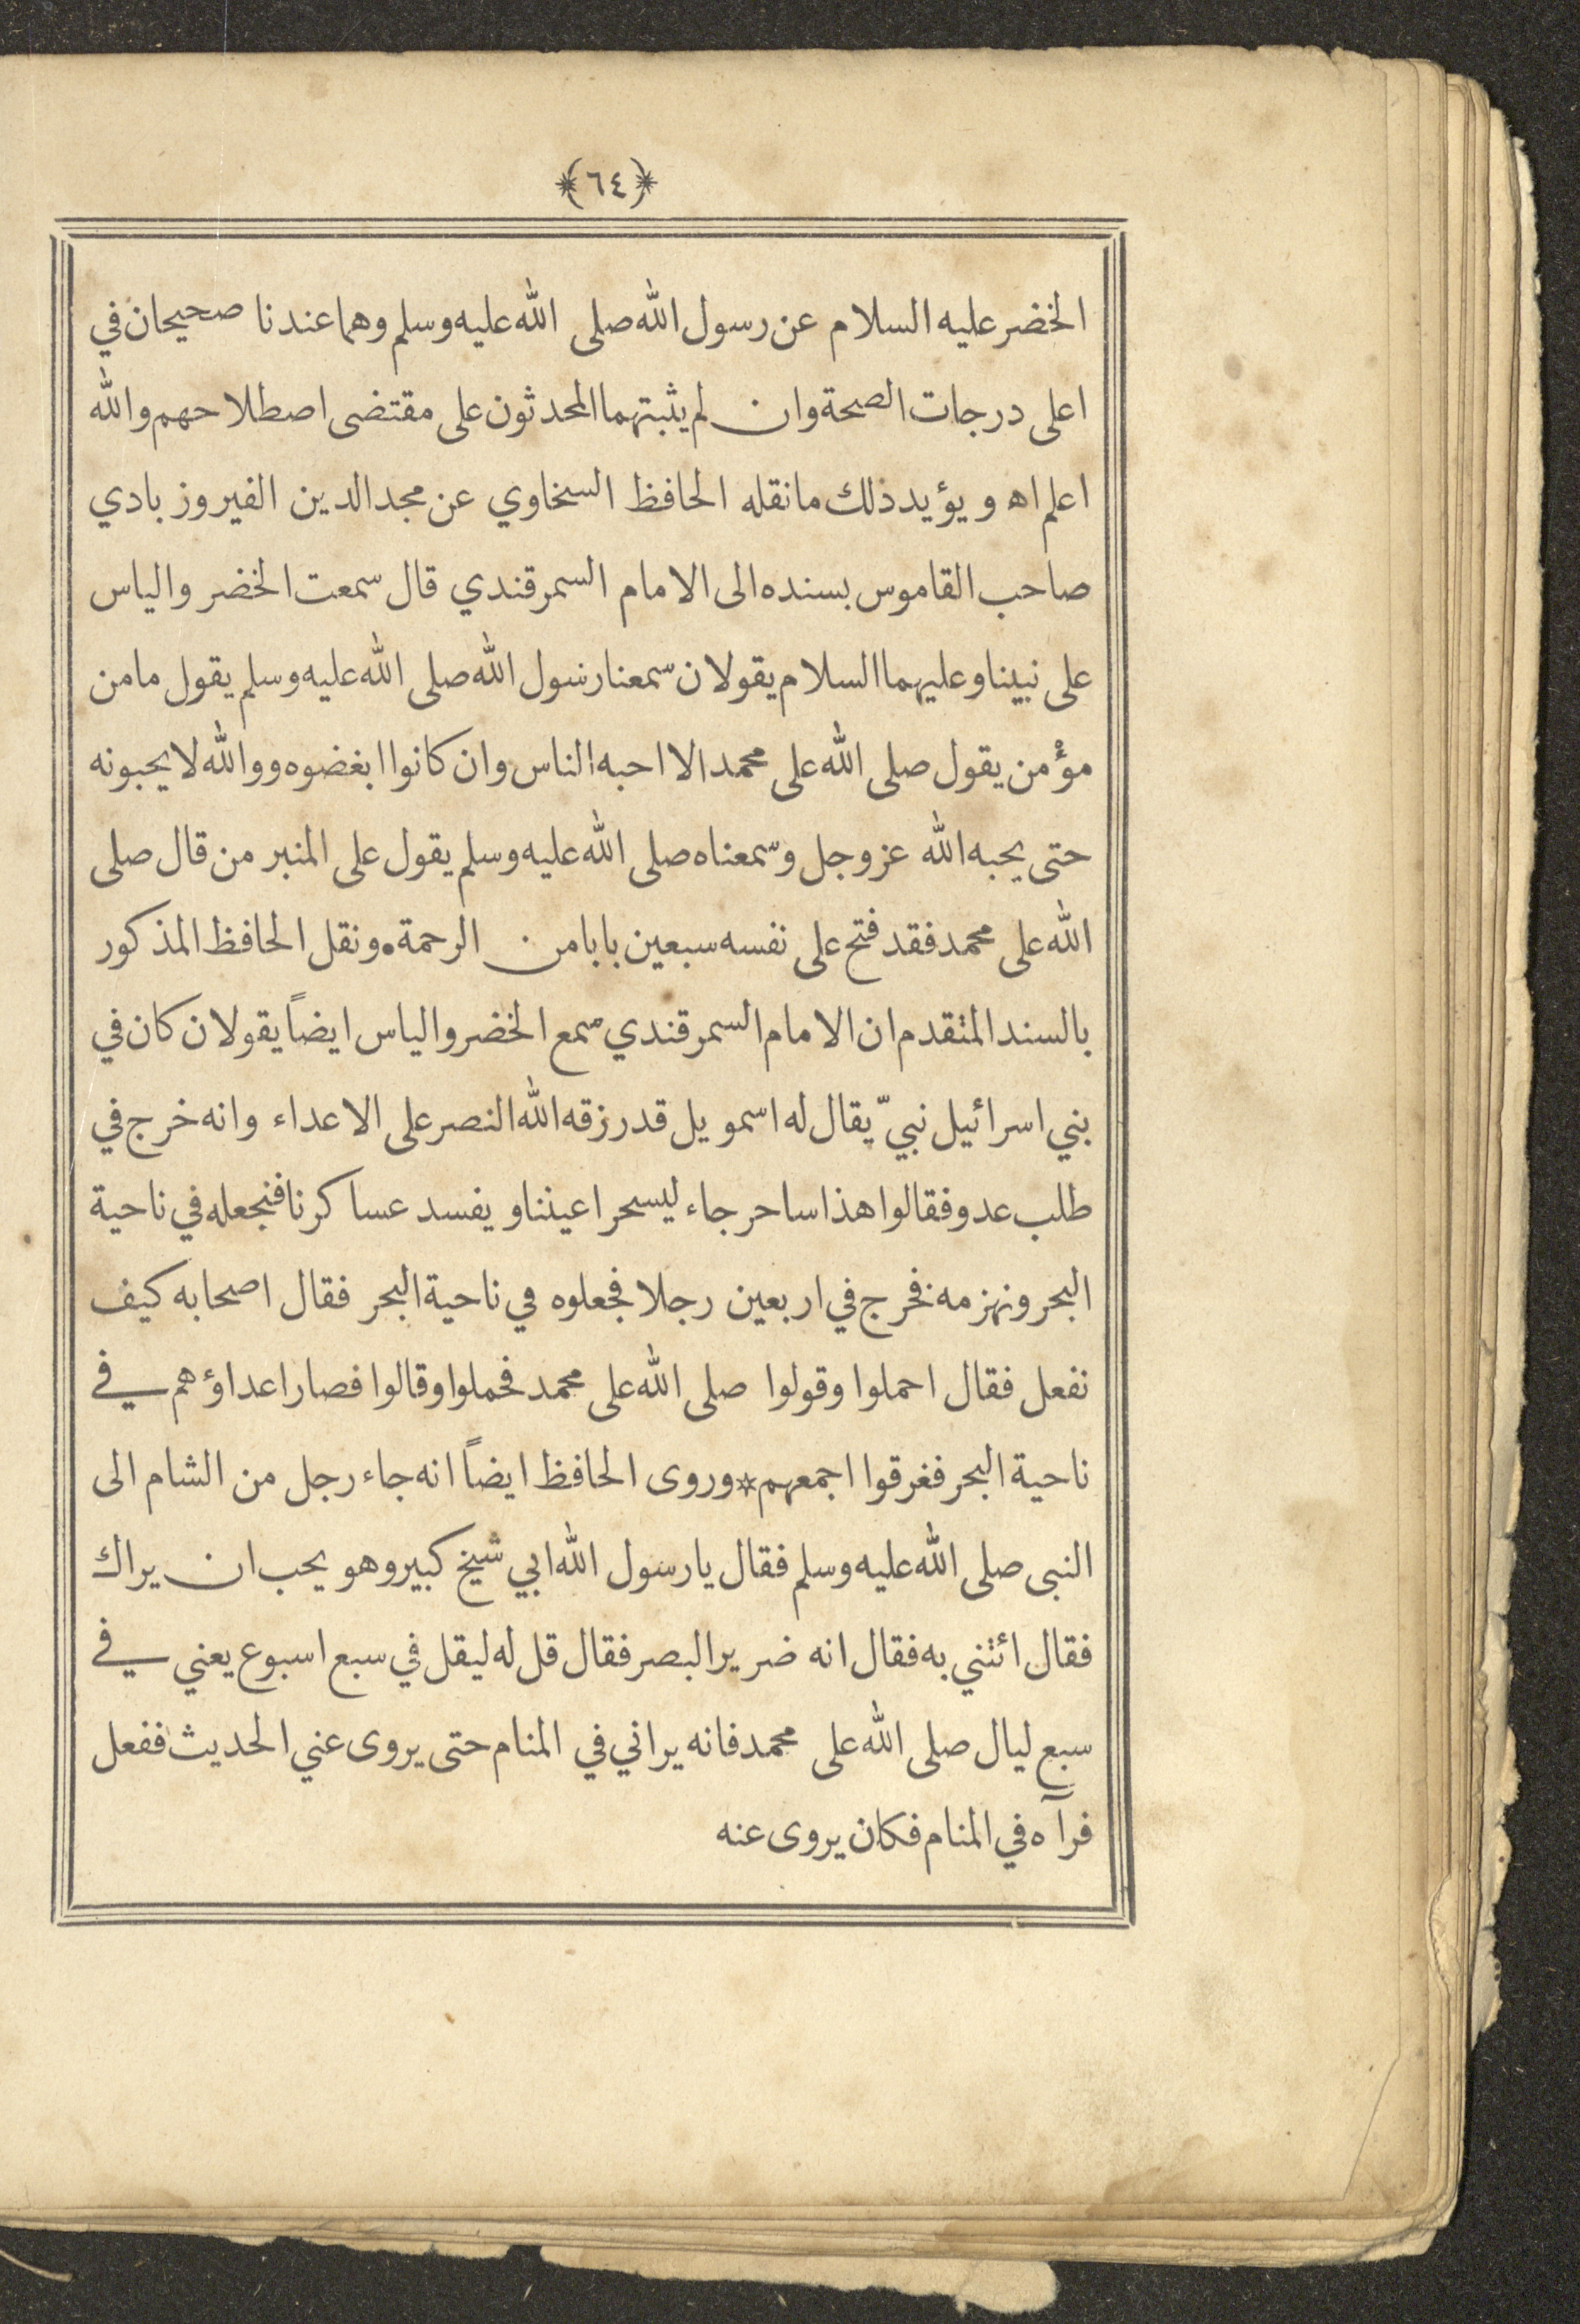 ﴿٦٤﴾
الخضر عليه السلام عن رسول الله صلى الله عليه وسلم وهما عندنا صحيحان في
اعلى درجات الصحة وان لم يثبتهما المحدثون على مقتضى اصطلاحهم والله
اعلم اه ويؤيد ذلك ما نقله الحافظ السخاوي عن مجد الدين الفيروزبادي
صاحب القاموس بسنده الى الامام السمرقندي قال سمعت الخضر والياس
على نبينا وعليهما السلام يقولان سمعنا رسول الله صلى الله عليه وسلم يقول ما من
مؤمن يقول صلى الله على محمد الا احبه الناس وان كانوا ابغضوه ووالله لا يحبونه
حتى يحبه الله عز وجل وسمعناه صلى الله عليه وسلم يقول على المنبر من قال صلى
الله على محمد فقد فتح على نفسه سبعين بابا من الرحمة • ونقل الحافظ المذكور
بالسند المتقدم ان الامام السمرقندي سمع الخضر والياس ايضاً يقولان كان في
بني اسرائيل نبيّ يقال له اسمويل قد رزقه الله النصر على الاعداء وانه خرج في
طلب عدو فقالوا هذا ساحر جاء ليسحر اعيننا ويفسد عساكرنا فنجعله في ناحية
البحر ونهزمه فخرج في اربعين رجلا فجعلوه في ناحية البحر فقال اصحابه كيف
نفعل فقال احملوا وقولوا صلى الله على محمد فحملوا وقالوا فصار اعداؤهم في
ناحية البحر فغرقوا اجمعهم * وروى الحافظ ايضاً انه جاء رجل من الشام الى
النبى صلى الله عليه وسلم فقال يا رسول الله ابي شيخ كبير وهو يحب ان يراك
فقال ائتني به فقال انه ضرير البصر فقال قل له ليقل في سبع اسبوع يعني في
سبع ليال صلى الله على محمد فانه يراني في المنام حتى يروى عني الحديث ففعل
فرآه في المنام فكان يروى عنه